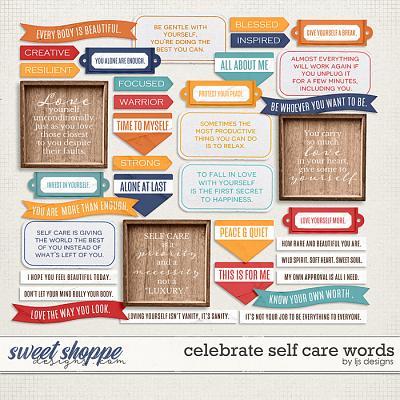 EVERY BODY IS BEAUTIFUL.
BE GENTLE WITH
YOURSELF,
YOU'RE DOING THE
BEST YOU CAN.
BLESSED
INSPIRED
GIVE YOURSELF A BREAK.
CREATIVE
RESILIENT
YOU ALONE ARE ENOUGH.
ALL ABOUT ME
ALMOST EVERYTHING
WILL WORK AGAIN IF
YOU UNPLUG IT
FOR A FEW MINUTES,
INCLUDING YOU.
FOCUSED
WARRIOR
PROTECT YOUR PEACE.
BE WHOEVER YOU WANT TO BE.
Love
yourself
unconditionally,
just as you love
those closest
to you despite
their faults.
TIME TO MYSELF
SOMETIMES THE
MOST PRODUCTIVE
THING YOU CAN DO
IS TO RELAX.
You carry
so much
love
in your heart,
give some to
yourself.
STRONG
INVEST IN YOURSELF.
ALONE AT LAST
TO FALL IN LOVE
WITH YOURSELF
IS THE FIRST SECRET
TO HAPPINESS.
YOU ARE MORE THAN ENOUGH.
LOVE YOURSELF MORE.
SELF CARE IS GIVING
THE WORLD THE BEST
OF YOU INSTEAD OF
WHAT'S LEFT OF YOU.
SELF CARE
is a
priority
and a
necessity
not a
"LUXURY."
PEACE & QUIET
HOW RARE AND BEAUTIFUL YOU ARE.
WILD SPIRIT, SOFT HEART, SWEET SOUL.
I HOPE YOU FEEL BEAUTIFUL TODAY.
THIS IS FOR ME
MY OWN APPROVAL IS ALL I NEED.
DON'T LET YOUR MIND BULLY YOUR BODY.
KNOW YOUR OWN WORTH.
LOVE THE WAY YOU LOOK.
LOVING YOURSELF ISN'T VANITY, IT'S SANITY.
IT'S NOT YOUR JOB TO BE EVERYTHING TO EVERYONE.
sweet shoppe
designs.com
celebrate self care words
by ljs designs